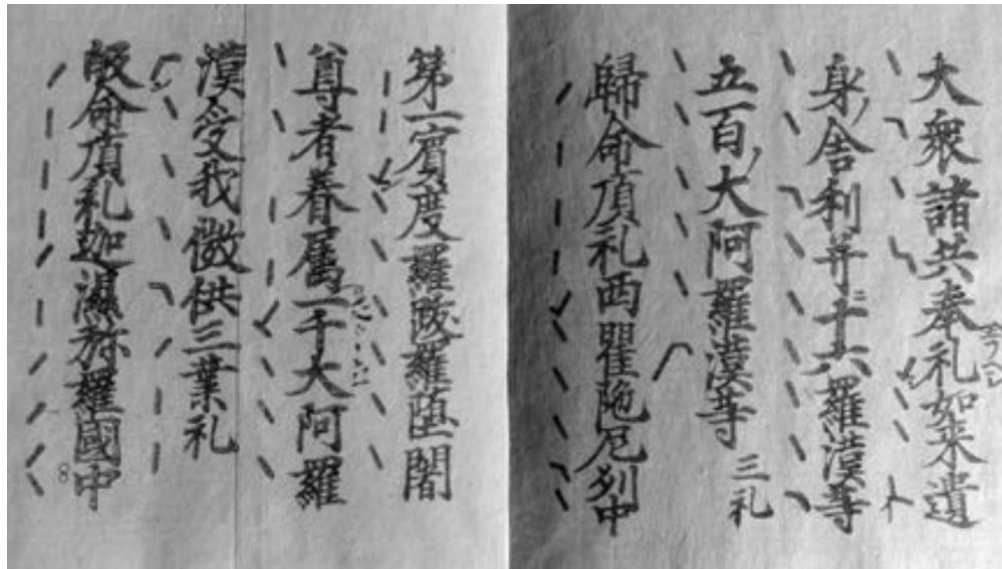 大衆諸共奉礼如来遺
身舎利并十六羅漢等
五百大阿羅漢等 三礼
歸命頂礼西瞿陁尼列中
第一賓度羅跋羅堕闍
尊者眷属一千大阿羅
漢受我微供三業礼
皈命頂礼迦濕弥羅國中